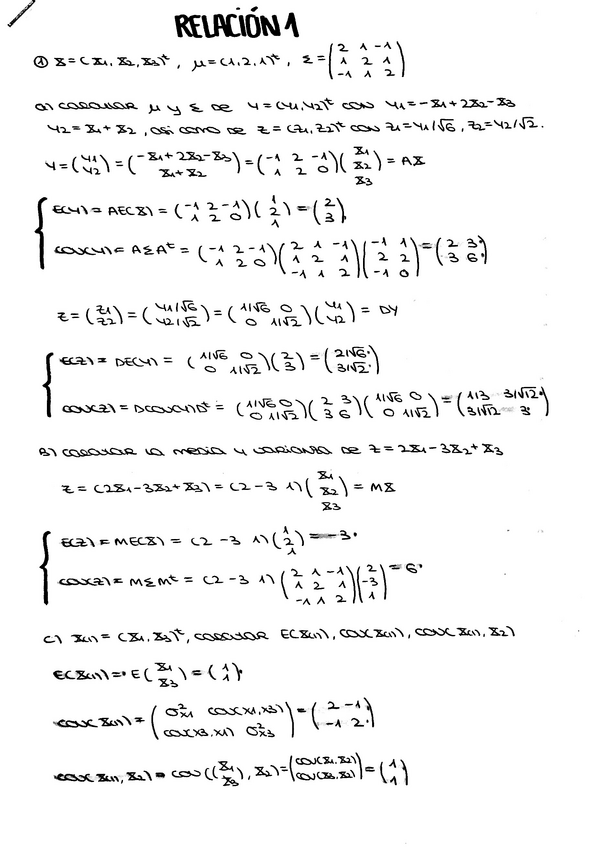 RELACIÓN 1
① X = (X1, X2, X3)ᵗ, μ = (1, 2, 1)ᵗ, Σ = (2 1 -1 / 1 2 1 / -1 1 2)
a) CALCULAR μ y Σ DE Y = (Y1, Y2)ᵗ CON Y1 = -X1 + 2X2 - X3
Y2 = X1 + X2, ASÍ COMO DE Z = (Z1, Z2)ᵗ CON Z1 = Y1/√6, Z2 = Y2/√2.
Y = (Y1 / Y2) = (-X1 + 2X2 - X3 / X1 + X2) = (-1 2 -1 / 1 2 0)(X1 / X2 / X3) = AX
E(Y) = AE(X) = (-1 2 -1 / 1 2 0)(1 / 2 / 1) = (2 / 3)
COV(Y) = AΣAᵗ = (-1 2 -1 / 1 2 0)(2 1 -1 / 1 2 1 / -1 1 2)(-1 1 / 2 2 / -1 0) = (2 3 / 3 6)
Z = (Z1 / Z2) = (Y1/√6 / Y2/√2) = (1/√6 0 / 0 1/√2)(Y1 / Y2) = DY
E(Z) = DE(Y) = (1/√6 0 / 0 1/√2)(2 / 3) = (2/√6 / 3/√2)
COV(Z) = DCOV(Y)Dᵗ = (1/√6 0 / 0 1/√2)(2 3 / 3 6)(1/√6 0 / 0 1/√2) = (1/3 3/√12 / 3/√12 3)
B) CALCULAR LA MEDIA Y VARIANZA DE Z = 2X1 - 3X2 + X3
Z = (2X1 - 3X2 + X3) = (2 -3 1)(X1 / X2 / X3) = MX
E(Z) = ME(X) = (2 -3 1)(1 / 2 / 1) = -3
COV(Z) = MΣMᵗ = (2 -3 1)(2 1 -1 / 1 2 1 / -1 1 2)(2 / -3 / 1) = 6
C) X(1) = (X1, X3)ᵗ, CALCULAR E(X(1)), COV(X(1)), COV(X(1), X2)
E(X(1)) = E(X1 / X3) = (1 / 1)
COV(X(1)) = (σ²X1 COV(X1, X3) / COV(X3, X1) σ²X3) = (2 -1 / -1 2)
COV(X(1), X2) = COV((X1 / X3), X2) = (COV(X1, X2) / COV(X3, X2)) = (1 / 1)